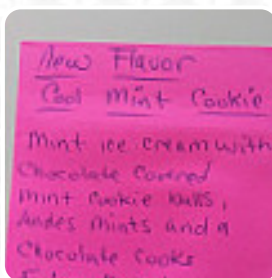 New Flavor
Cool Mint Cookie
Mint ice cream with
Chocolate Covered
mint cookie
Andes Mints and a
Chocolate Cooks